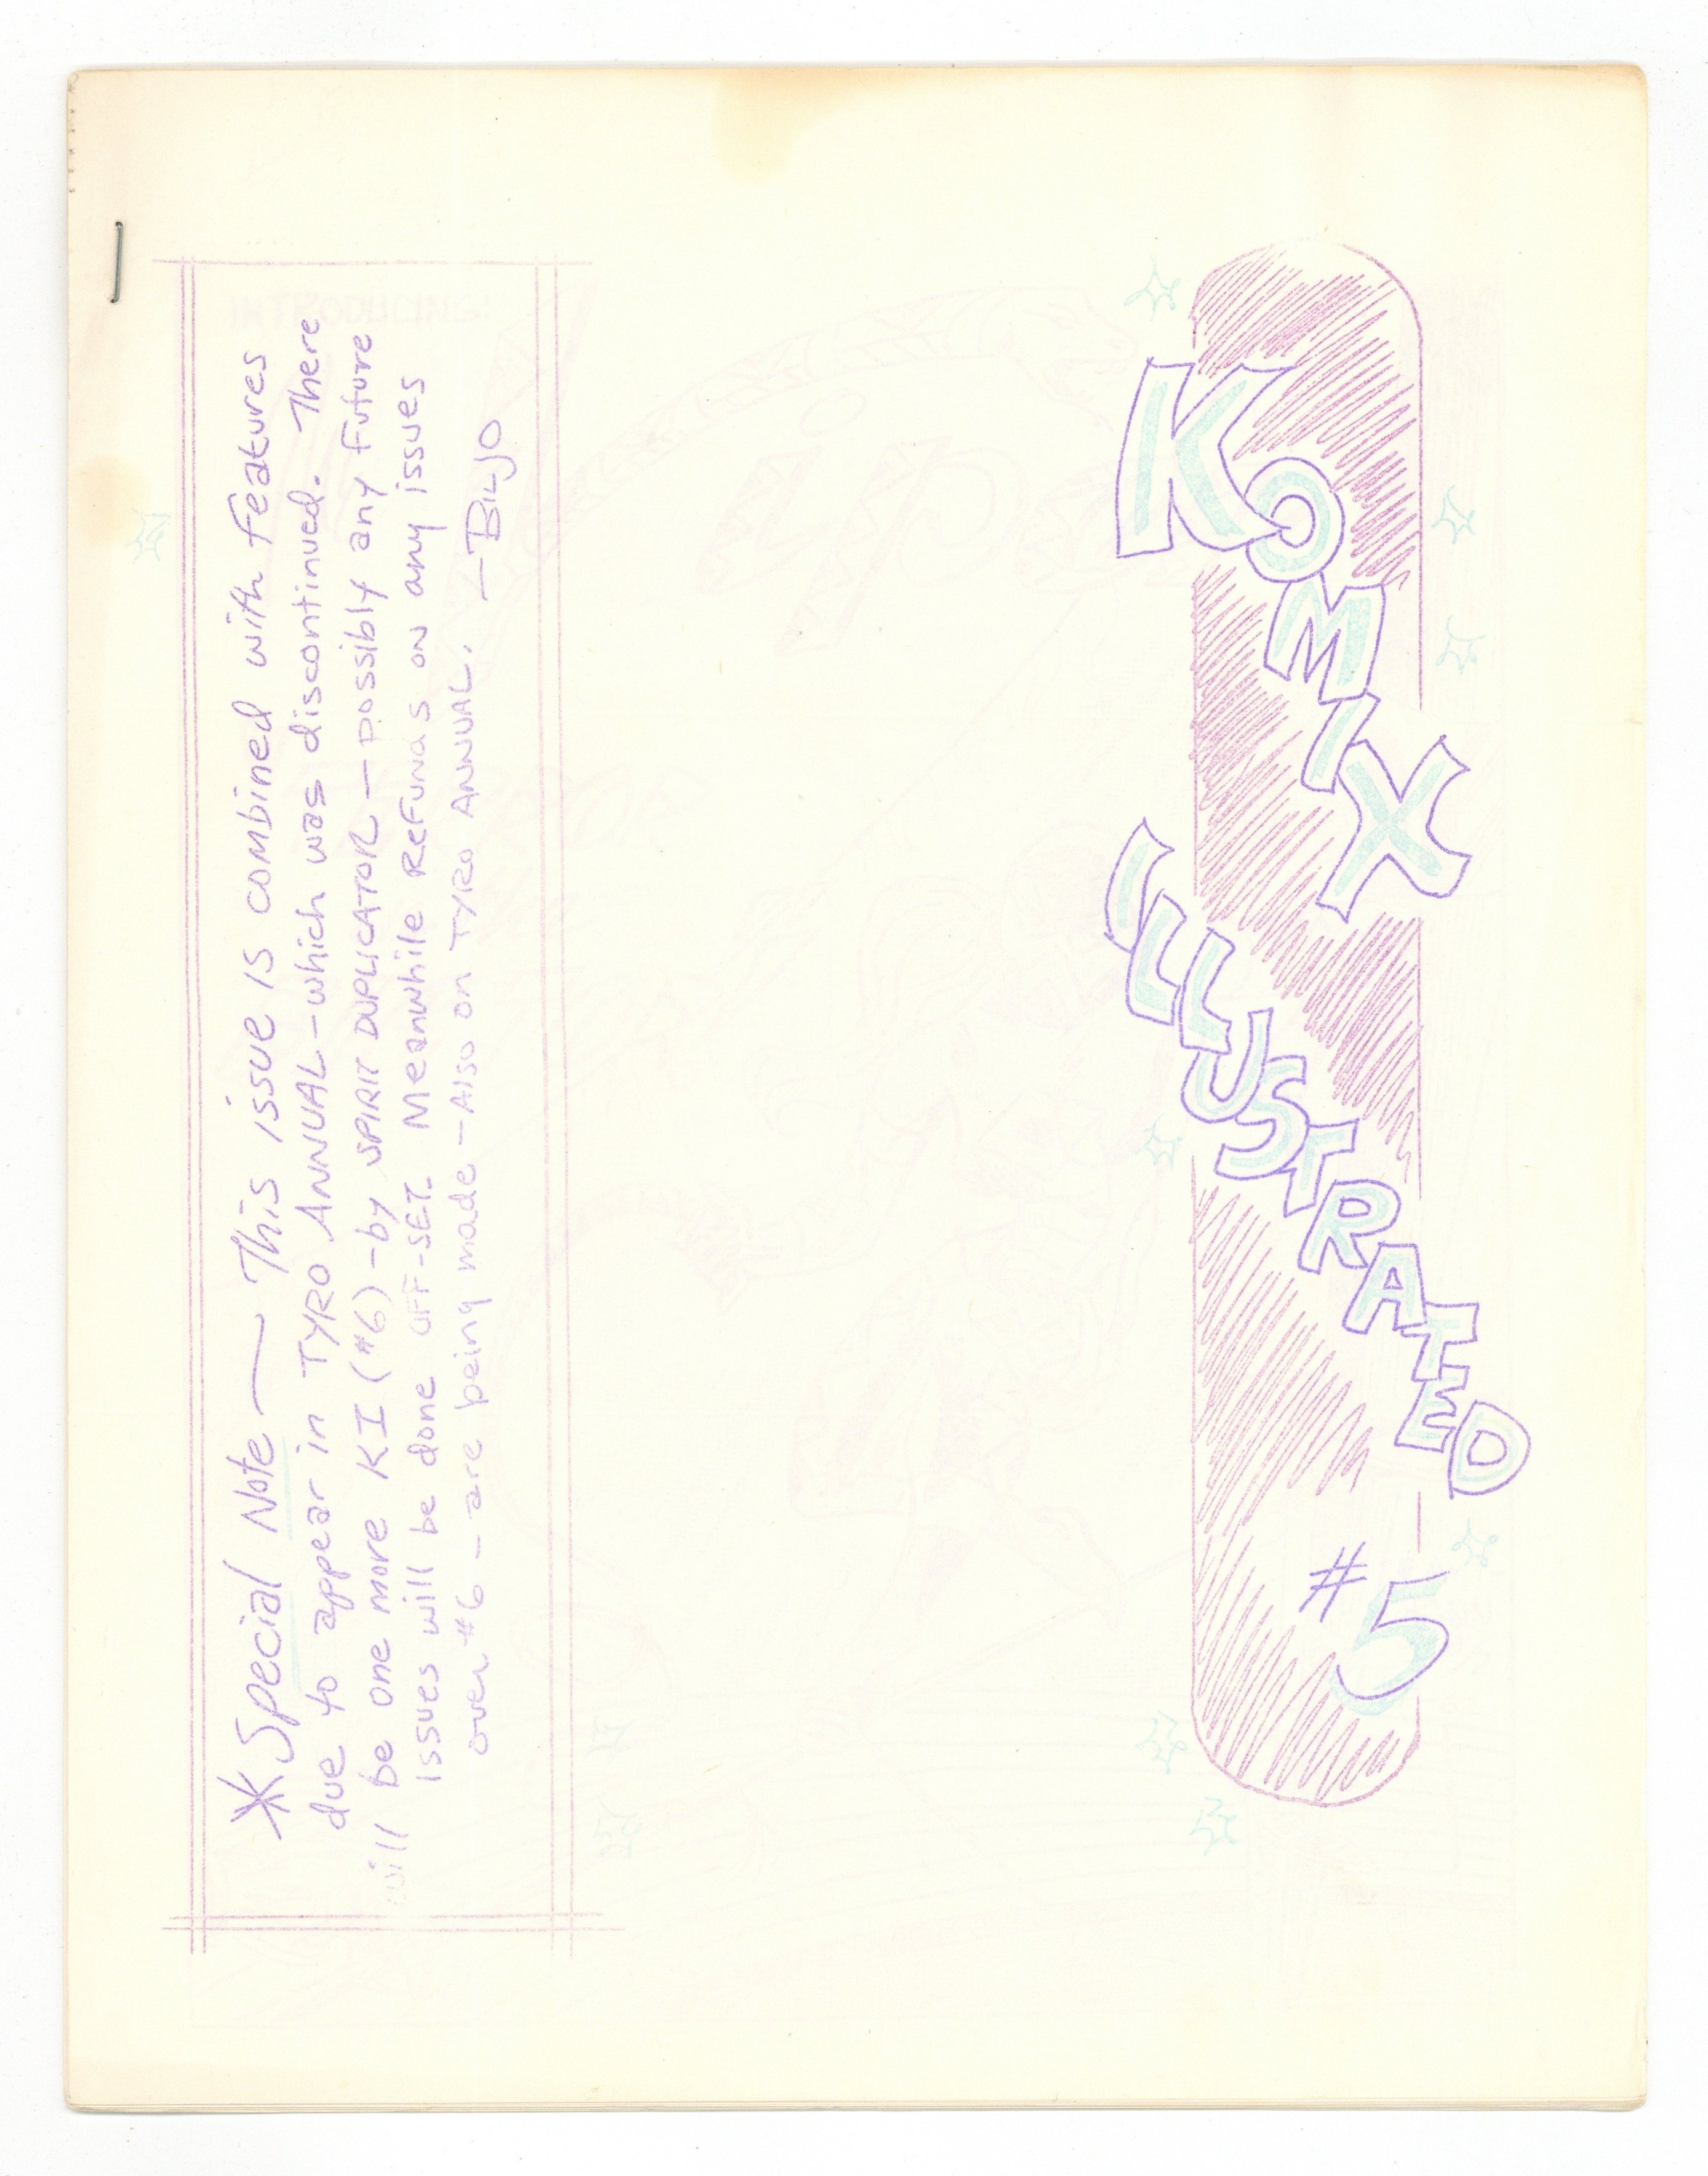 *Special Note — This issue is combined with features
due to appear in TYRO ANNUAL - which was discontinued. There
will be one more KI (#6) - by SPIRIT DUPLICATOR - possibly any future
issues will be done OFF-SET. Meanwhile Refunds on any issues
over #6 - are being made - Also on TYRO ANNUAL.
—BILJO
KOMIX
ILLUSTRATED
#5
INTRODUCING: